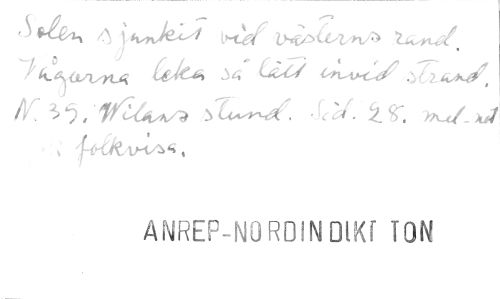 Solen sjunkit vid västerns rand.
Vågorna leka så lätt invid strand.
N. 39. Wilans stund. Sid. 28. mel-not
folkvisa.
ANREP-NORDIN DIKT TON